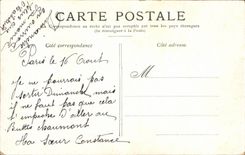 CARTE POSTALE
La Correspondance au recto n'est pas acceptée par tous les pays étrangers
(Se renseigner à la Poste)
Côté correspondance
Côté adresse
M
Paris le 16 Aout
Je ne pourrais pas
sortir Dimanche mais
il ne faut pas que cela
t'empêche D'aller au
Buttes chaumont
ta Sœur Constance